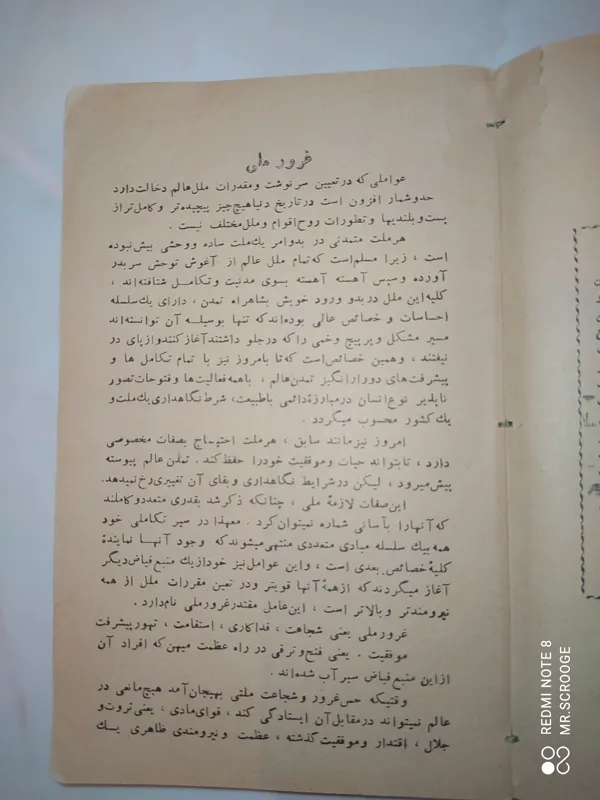 غرور ملی
عواملی که در تعیین سرنوشت و مقدرات ملل عالم دخالت دارد
حدوشمار افزون است در تاریخ دنیا هیچ چیز پیچیده تر و کامل تر از
پست و بلندیها و تطورات روح اقوام و ملل مختلف نیست .
هر ملت متمدنی در بدو امر یک ملت ساده و وحشی بیش نبوده
است ، زیرا مسلم است که تمام ملل عالم از آغوش توحش سربدر
آورده و سپس آهسته آهسته بسوی مدنیت و تکامل شتافته اند ،
کلیه این ملل در بدو ورود خویش بشاهراه تمدن ، دارای یک سلسله
احساسات و خصائص عالی بوده اند که تنها بوسیله آن توانسته اند
مسیر مشکل و پر پیچ و خمی را که در جلو داشتند آغاز کنند و از پای در
نیفتند ، و همین خصائص است که تا بامروز نیز با تمام تکامل ها و
پیشرفت های دورار انگیز تمدن عالم ، با همه فعالیت ها و فتوحات تصور
ناپذیر نوع انسان در مبارزهٔ دائمی با طبیعت، شرط نگاهداری یک ملت و
یک کشور محسوب میگردد .
امروز نیز مانند سابق ، هر ملت احتیاج بصفات مخصوصی
دارد ، تا بتواند حیات و موفقیت خود را حفظ کند . تمدن عالم پیوسته
پیش میرود ، لیکن در شرایط نگاهداری و بقای آن تغییری رخ نمیدهد.
این صفات لازمهٔ ملی ، چنانکه ذکر شد بقدری متعدد و کاملند
که آنها را بآسانی شماره نمیتوان کرد . معهذا در سیر تکاملی خود
همه بیک سلسله مبادی متعددی منتهی میشوند که وجود آنها نمایندهٔ
کلیهٔ خصائص بعدی است ، و این عوامل نیز خود از یک منبع فیاض دیگر
آغاز میگردند که از همهٔ آنها قویتر و در تعین مقررات ملل از همه
نیرومندتر و بالاتر است ، این عامل مقتدر غرور ملی نام دارد .
غرور ملی یعنی شجاعت ، فداکاری ، استقامت ، تهور پیشرفت
موفقیت . یعنی فتح و ترقی در راه عظمت میهن که افراد آن
از این منبع فیاض سیر آب شده اند .
وقتیکه حس غرور و شجاعت ملتی بهیجان آمد هیچ مانعی در
عالم نمیتواند در مقابل آن ایستادگی کند ، قوای مادی ، یعنی ثروت و
جلال ، اقتدار و موفقیت گذشته ، عظمت و نیرومندی ظاهری یک
REDMI NOTE 8
MR.SCROOGE